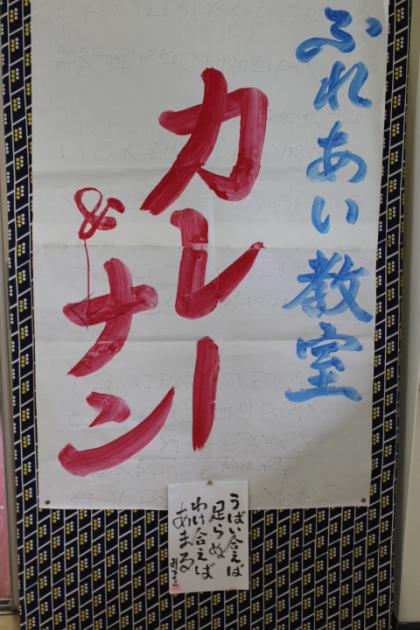 ふれあい教室
カレー
&ナン
うばい合えば
足らぬ
わけ合えば
あまる